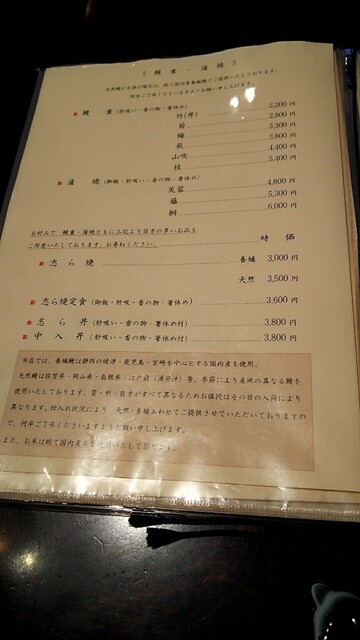 《 鰻重・蒲焼 》
天然鰻が不漁の場合は、総て国内産養殖鰻でご提供いたしております。
何卒ご了承くださいますようお願い申し上げます。
鰻 重 (肝吸い・香の物・箸休め)
2,200 円
竹(丼) 2,900 円
菊 3,300 円
梅 3,800 円
萩 4,400 円
山吹 5,400 円
桂
蒲 焼 (御飯・肝吸い・香の物・箸休め)
芙蓉 4,800 円
藤 5,300 円
桐 6,000 円
お好みで 鰻重・蒲焼ともに上記より目方の多いお品も
ご用意いたしております。お尋ねください。 時 価
志ら焼 養殖 3,000 円
天然 3,500 円
志ら焼定食 (御飯・肝吸・香の物・箸休め) 3,600 円
志ら丼 (肝吸い・香の物・箸休め付) 3,800 円
中入丼 (肝吸い・香の物・箸休め付) 3,800 円
当店では、養殖鰻は静岡の焼津・鹿児島・宮崎を中心とする国内産を使用。
天然鰻は佐賀県・岡山県・島根県・江戸前(浦安沖)等、季節により産地の異なる鰻を
使用いたしております。質・形・目方がすべて異なるためお値段はその日の入荷により
異なります。仕入れ状況により 天然・養殖あわせてご提供させていただいておりますの
で、何卒ご了承くださいますようお願い申し上げます。
また、お米は総て国内産米を使用いたしております。